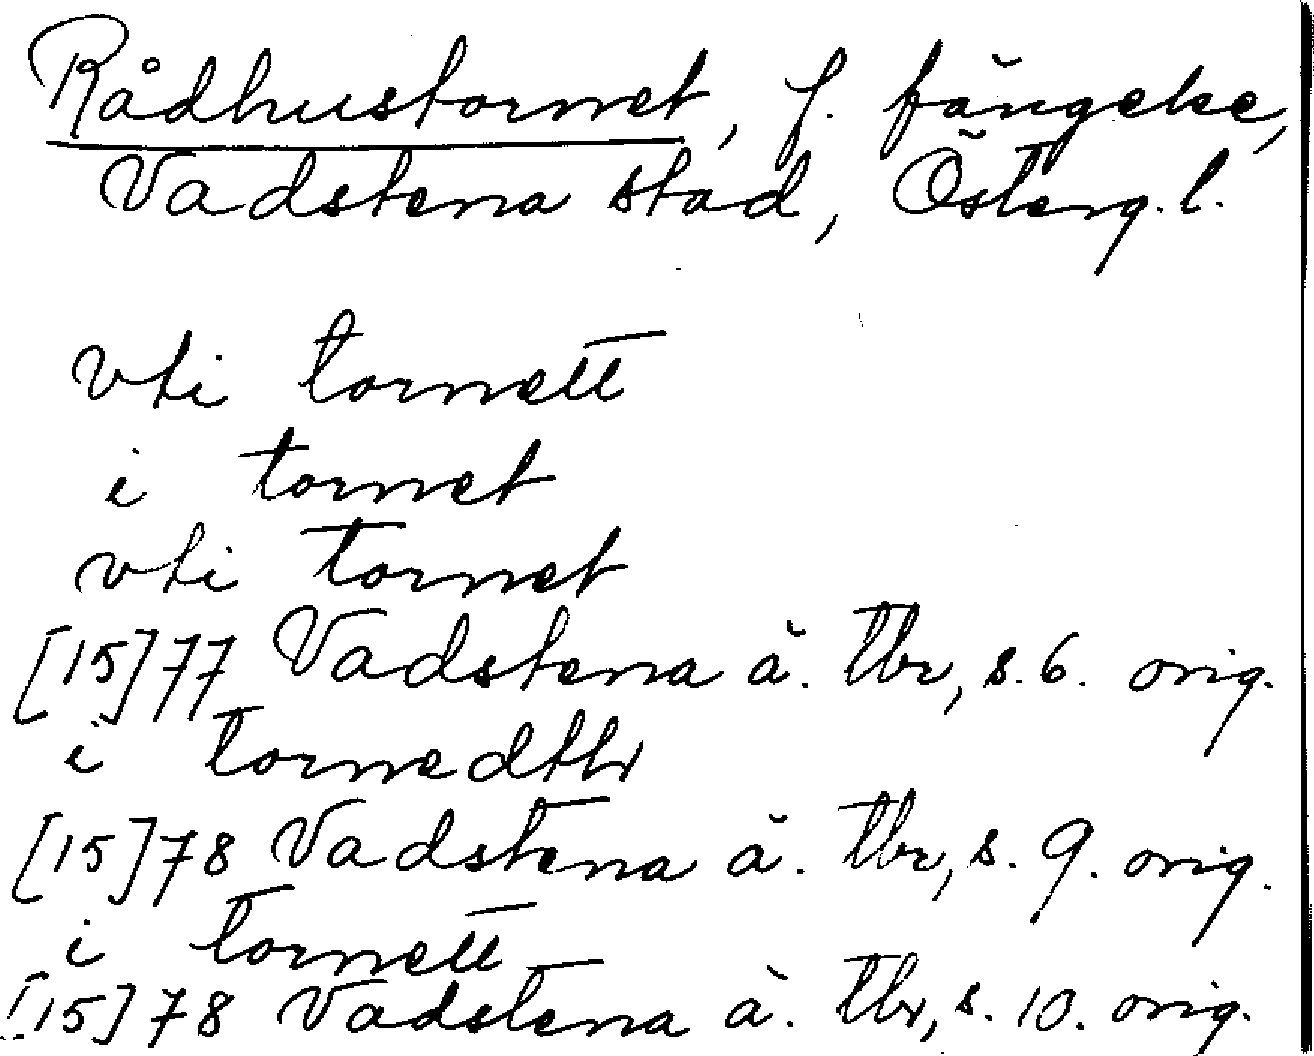 Rådhustornet, f. fängelse,
Vadstena stad, Österg. l.
vti tornett
i tornet
vti tornet
[15]77 Vadstena ä. tbr, s. 6. orig.
i tornedthr
[15]78 Vadstena ä. tbr, s. 9. orig.
i tornett
[15]78 Vadstena ä. tbr, s. 10. orig.